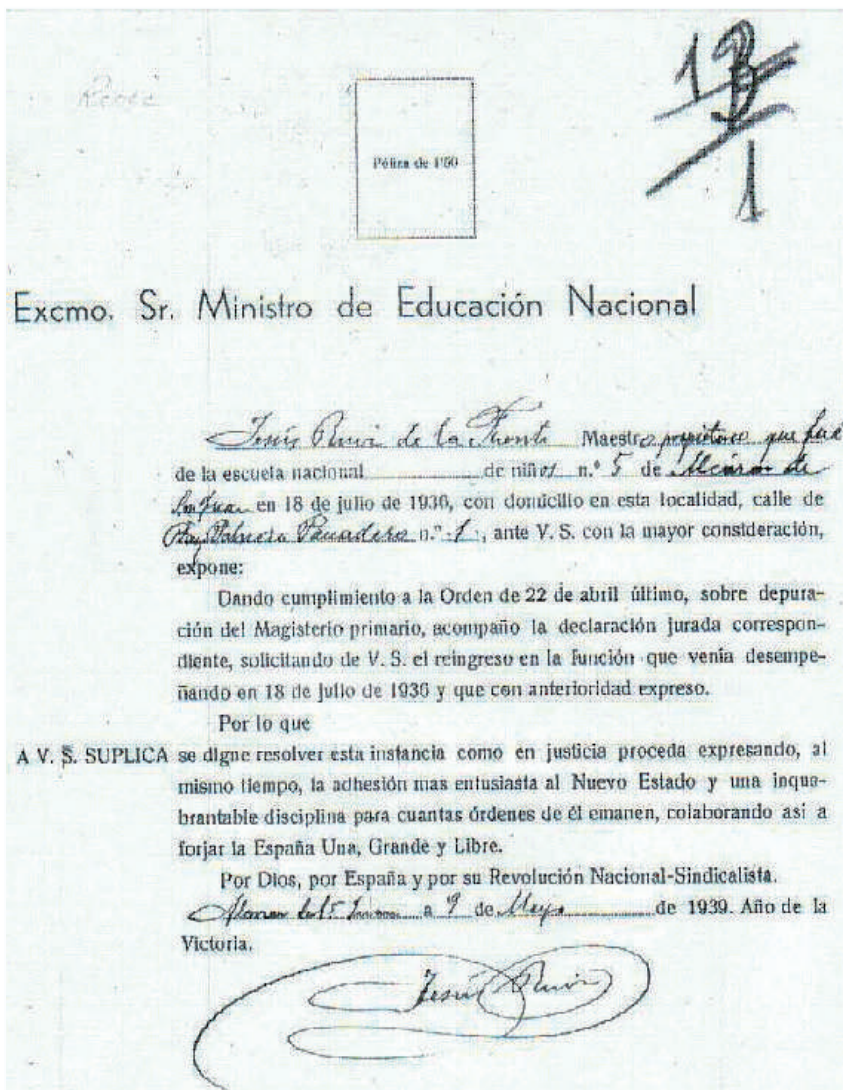 Póliza de 1'50
Excmo. Sr. Ministro de Educación Nacional
Jesús Ruiz de la Fuente Maestro propietario que fué
de la escuela nacional de niños n.º 5 de Alcázar de
San Juan en 18 de julio de 1936, con domicilio en esta localidad, calle de
n.º 1, ante V. S. con la mayor consideración,
expone:
Dando cumplimiento a la Orden de 22 de abril último, sobre depura-
ción del Magisterio primario, acompaño la declaración jurada correspon-
diente, solicitando de V. S. el reingreso en la función que venía desempe-
ñando en 18 de julio de 1936 y que con anterioridad expreso.
Por lo que
A V. S. SUPLICA se digne resolver esta instancia como en justicia proceda expresando, al
mismo tiempo, la adhesión mas entusiasta al Nuevo Estado y una inque-
brantable disciplina para cuantas órdenes de él emanen, colaborando asi a
forjar la España Una, Grande y Libre.
Por Dios, por España y por su Revolución Nacional-Sindicalista.
a 9 de Mayo de 1939. Año de la
Victoria.
Jesús Ruiz